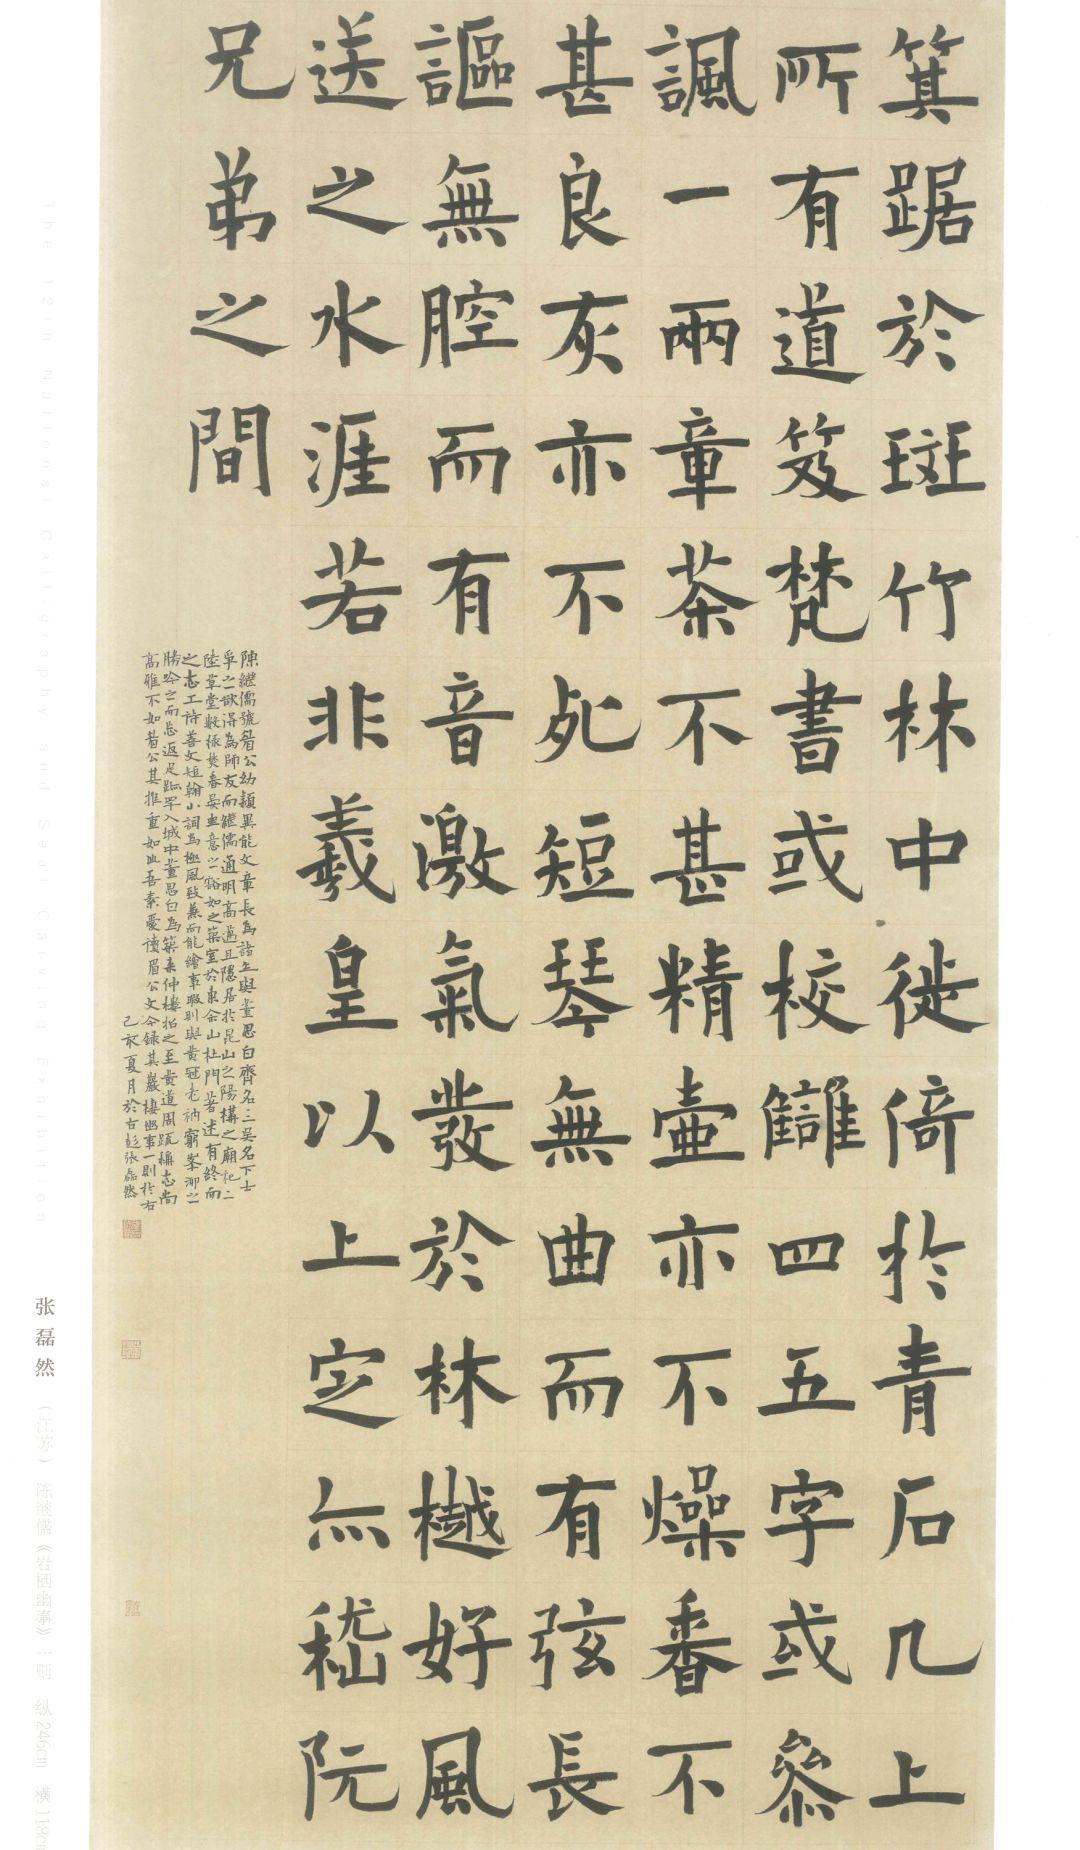 箕踞於斑竹林中徙倚於青石几上
所有道笈梵書或校讎四五字或參
諷一兩章茶不甚精壺亦不燥香不
甚良灰亦不死短琴無曲而有弦長
謳無腔而有音激氣發於林樾好風
送之水涯若非羲皇以上定亦嵇阮
兄弟之間
陳繼儒號眉公幼穎異能文章長為諸生與董思白齊名三吳名下士
爭之欲得為師友而繼儒通明高邁且隱居於昆山之陽構之廟祀二
陸草堂數椽焚香晏坐意之豁如之築室於東佘山杜門著述有終而
之志工詩善文短翰小詞為極風致兼而能繪事暇則與黃冠老衲窮峯泖之
勝吟之而忘返足跡罕入城中董思白為築來仲樓招之至黃道周疏稱志尚
高雅不如眉公其推重如此吾素愛讀眉公文今錄其巖棲幽事一則於右
己亥夏月於古彭張磊然
The 12th National Calligraphy and Seal Carving Exhibition
张磊然（江苏） 陈继儒《岩栖幽事》一则 纵246cm 横118cm